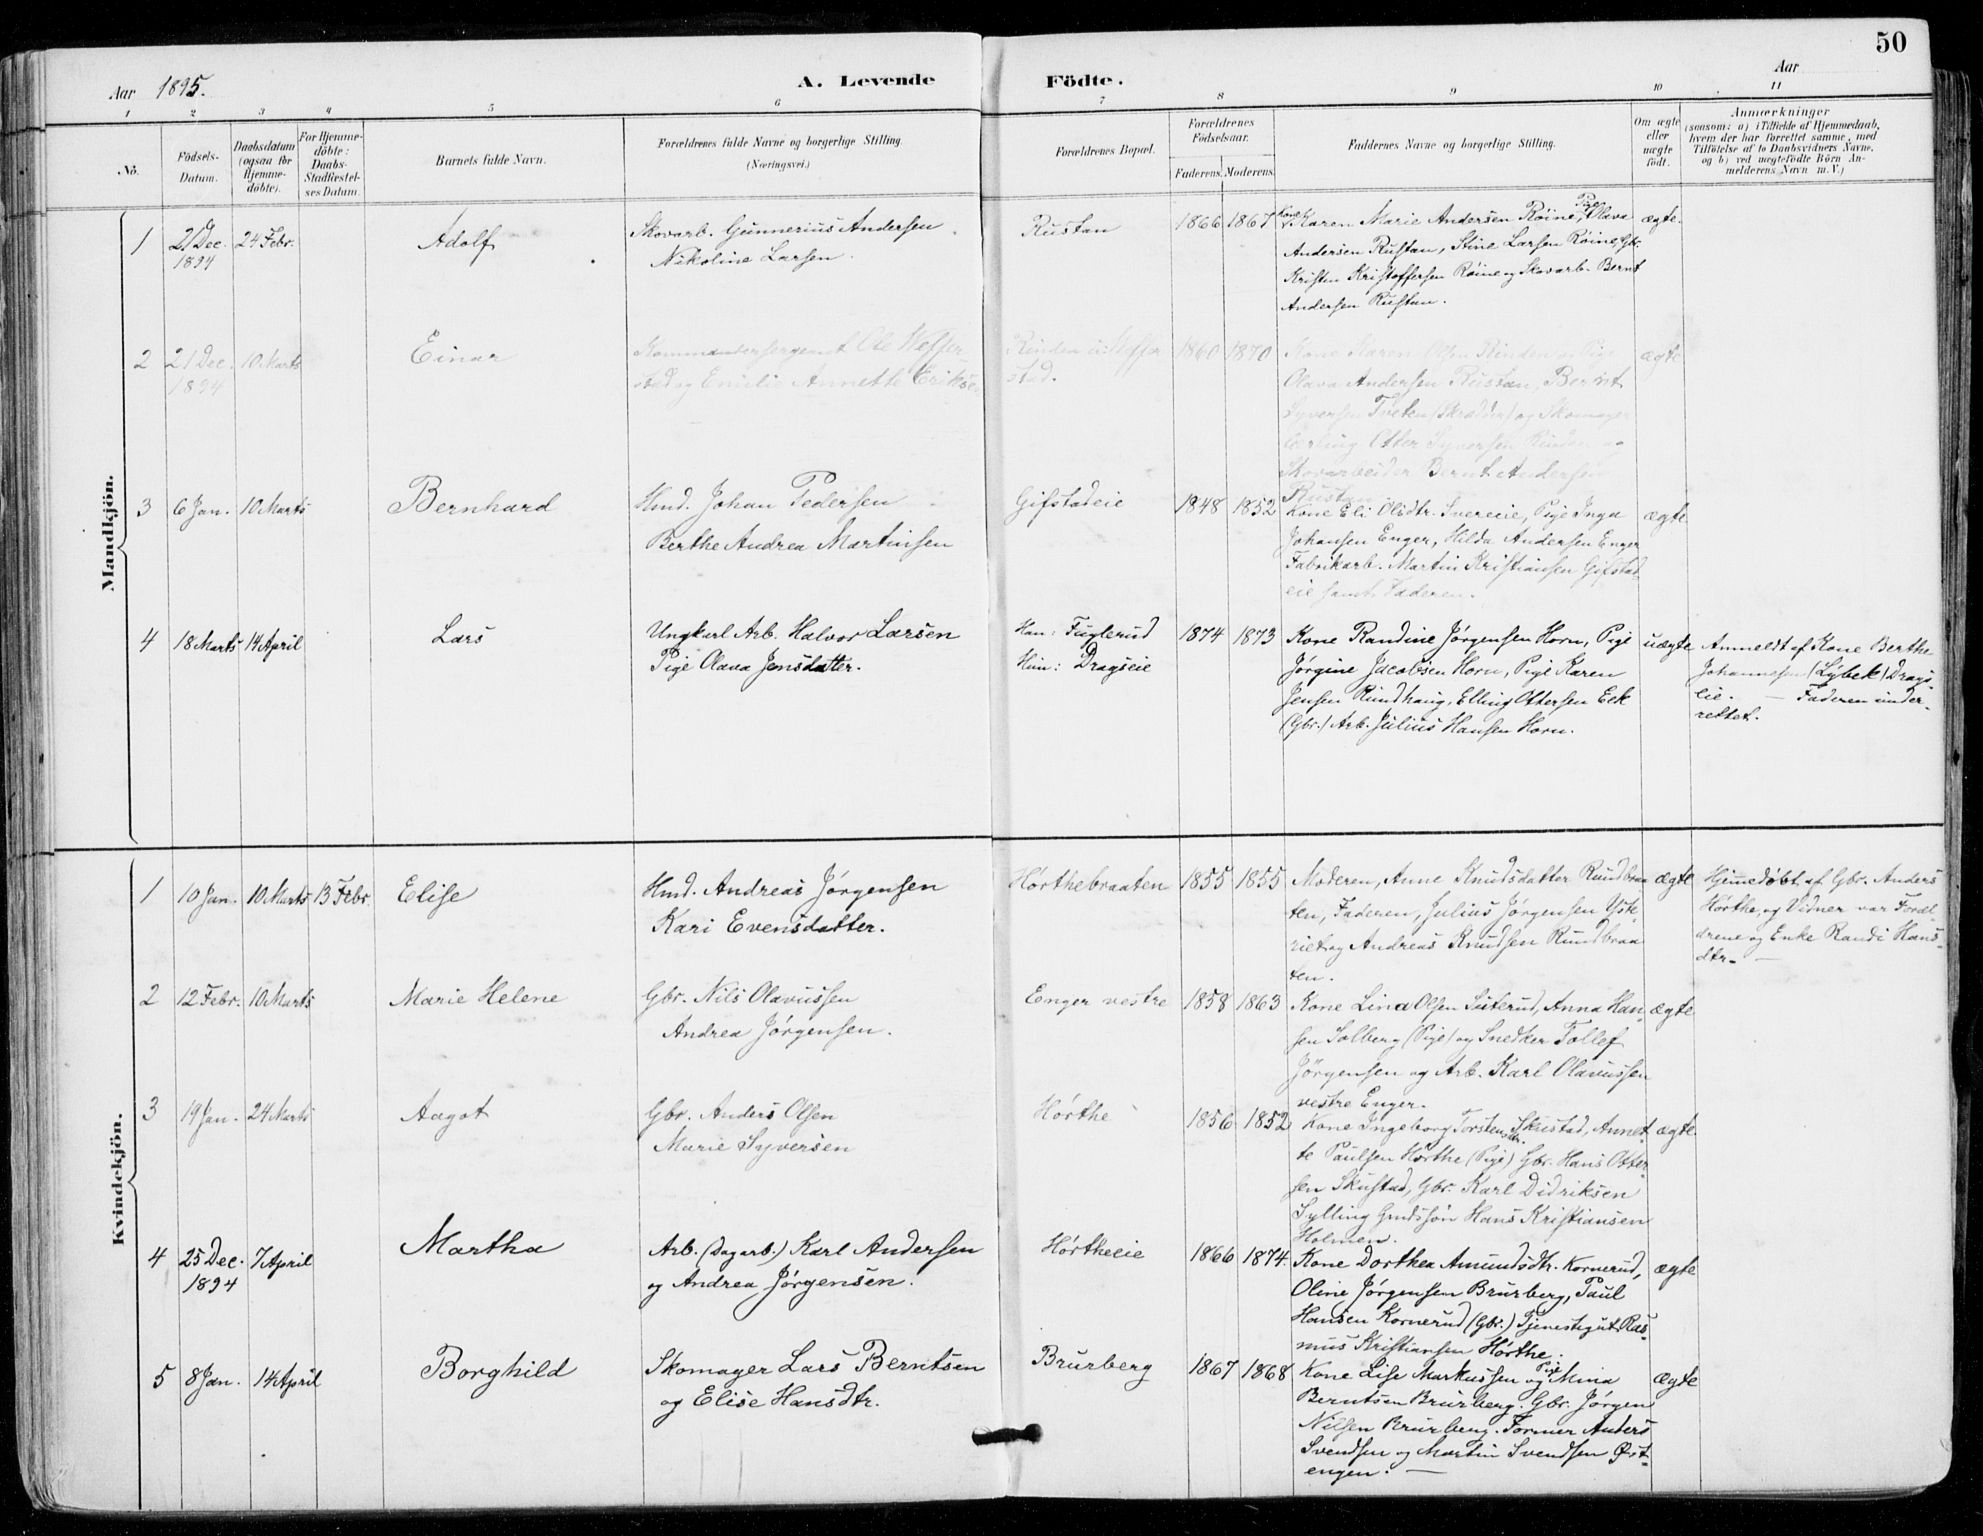 50
Aar 1895.
A. Levende Födte.
Aar
1 2 3 4 5 6 7 8 9 10 11
No.
Födsels-Datum.
Daabsdatum (ogsaa for Hjemme-döbte).
For Hjemme-döbte: Daabs-Stadfæstel-ses Datum.
Barnets fulde Navn.
Forældrenes fulde Navne og borgerlige Stilling.
(Næringsvei.)
Forældrenes Bopæl.
Forældrenes Födselsaar.
Faderens. Moderens.
Faddernes Navne og borgerlige Stilling.
Om ægte eller uægte födt.
Anmærkninger
(saasom: a) i Tilfælde af Hjemmedaab, hvem der har forrettet samme, med Tilföielse af to Daabsvidners Navne, og b) ved uægtefödte Börn An-melderens Navn m. V.)
Mandkjön.
1 21 Dec. 1894 24 Febr. Adolf
Skovarb. Gunnerius Andersen
Nikoline Larsen.
Rustan 1866 1867
Kone Karen Marie Andersen Røine, Pige Olava
Andersen Rustan, Stine Larsen Røine, Gbr.
Kristen Kristoffersen Røine og Skovarb. Bernt
Andersen Rustan.
ægte.
2 21 Dec. 1894 10 Marts Einar
Kommandersergeant Ole
sted og Emilie Annette Eriksen
Rinden
stad.
1860 1870
Kone Karen Olsen Rinden og Pige
Olava Andersen Rustan, Bernt
Syversen Tveten (Skrædder) og Skomager
lærling Otter Syversen Rinden og
Skovarbeider Bernt Andersen
Rustan
ægte
3 6 Jan. 10 Marts Bernhard
Hmd. Johan Pedersen
Berthe Andrea Martinsen
Gifstadeie 1848 1852
Kone Eli Olsdtr. Snereie, Pige Inga
Johansen Enger, Hilda Andersen Enger
Fabrikarb. Martin Kristiansen Gifstad-
eie samt Faderen.
ægte
4 18 Marts 14 April Lars
Ungkarl Arb. Halvor Larsen
Pige Olava Jensdatter.
Han: Fuglerud
Hun: Dragseie
1874 1873
Kone Randine Jørgensen Horn, Pige
Jørgine Jacobsen Horn, Pige Karen
Jensen Rundhaug, Elling Ottersen Eek
(Gbr.) Arb. Julius Hansen Horn.
uægte
Anmeldt af Kone Berthe
Johannesen (Lybek) Drags-
eie. — Faderen under-
rettet.
Kvindekjön.
1 10 Jan. 10 Marts 13 Febr. Elise
Hmd. Andreas Jørgensen
Kari Evensdatter.
Hørthebraaten 1855 1855
Moderen, Anne Knudsdatter Rundbraa
ten, Faderen, Julius Jørgensen
og Andreas Knudsen Rundbraa
ten.
ægte
Hjemmedøbt af Gbr. Anders
Hørthe, og Vidner var Foræl-
drene og Enke Randi Hans-
dtr. —
2 12 Febr. 10 Marts Marie Helene
Gbr. Nils Olavussen
Andrea Jørgensen.
Enger vestre 1858 1863
Kone Lina Olsen Sæterud, Anna Han-
sen Solberg (Pige) og Snedker Tollef
Jørgensen og Arb. Karl Olavussen
vestre Enger.
ægte
3 19 Jan. 24 Marts Aagot
Gbr. Anders Olsen
Marie Syversen
Hørthe 1856 1852
Kone Ingeborg Torstensdr. Skustad, Annet-
te Paulsen Hørthe (Pige) Gbr. Hans Otter
sen Skustad, Gbr. Karl Didriksen
Sylling Grndssøn Hans Kristiansen
Holmen.
ægte
4 25 Dec. 1894 7 April Martha
Arb. (Dagarb.) Karl Andersen
og Andrea Jørgensen.
Hørtheeie 1866 1874.
Kone Dorthea Amundsdtr. Kornerud,
Oline Jørgensen Brurberg, Paul
Hansen Kornerud (Gbr.) Tjenestegut Ras-
mus Kristiansen Hørthe.
ægte
5 8 Jan. 14 April Borghild
Skomager Lars Berntsen
og Elise Hansdtr.
Brurberg 1867 1868
Kone Lise Markussen og Pige Mina
Berntsen Brurberg. Gbr. Jørgen
Nilsen Brurberg. Former Anders
Svendsen og Martin Svendsen Øst-
engen. —
ægte